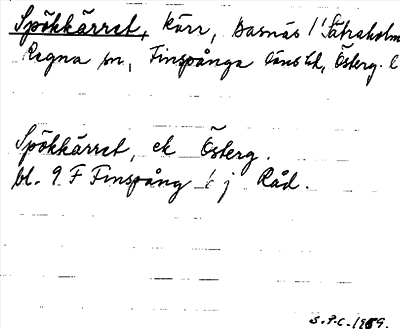 Spökkärret, kärr, Dasnäs / Sätraholm
Regna sn, Finspånga läns hd, Österg. l
Spökkärret, ek Österg.
bl. 9 F Finspång b j Råd.
S.P.C. 1959.